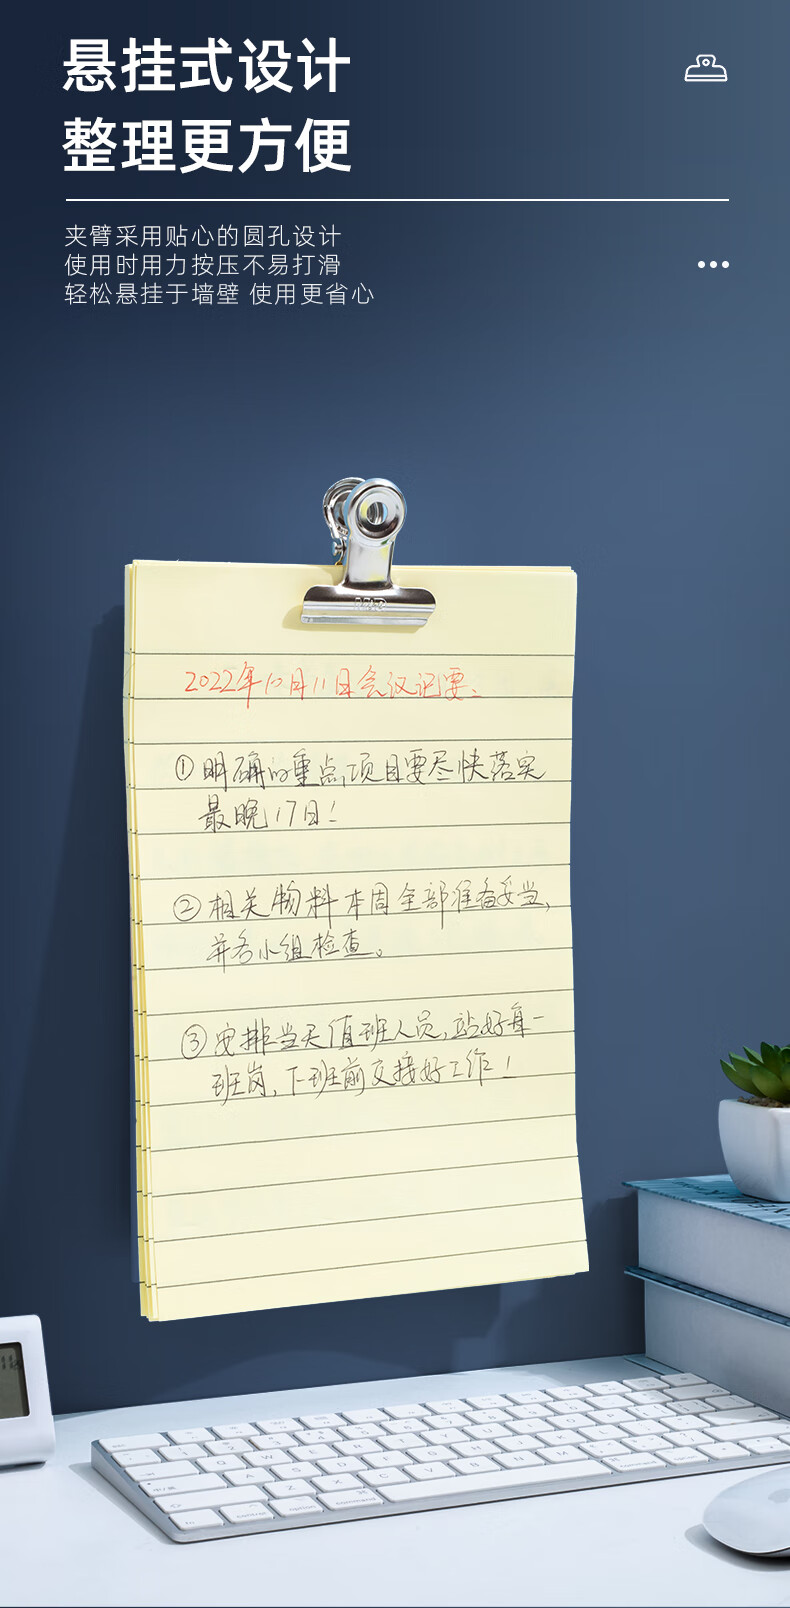 悬挂式设计
整理更方便
夹臂采用贴心的圆孔设计
使用时用力按压不易打滑
轻松悬挂于墙壁 使用更省心
2022年10月11日会议记要、
①明确的重点项目要尽快落实
最晚17日！
②相关物料本周全部准备妥当,
并各小组检查。
③安排当天值班人员,站好每一
班岗,下班前交接好工作！